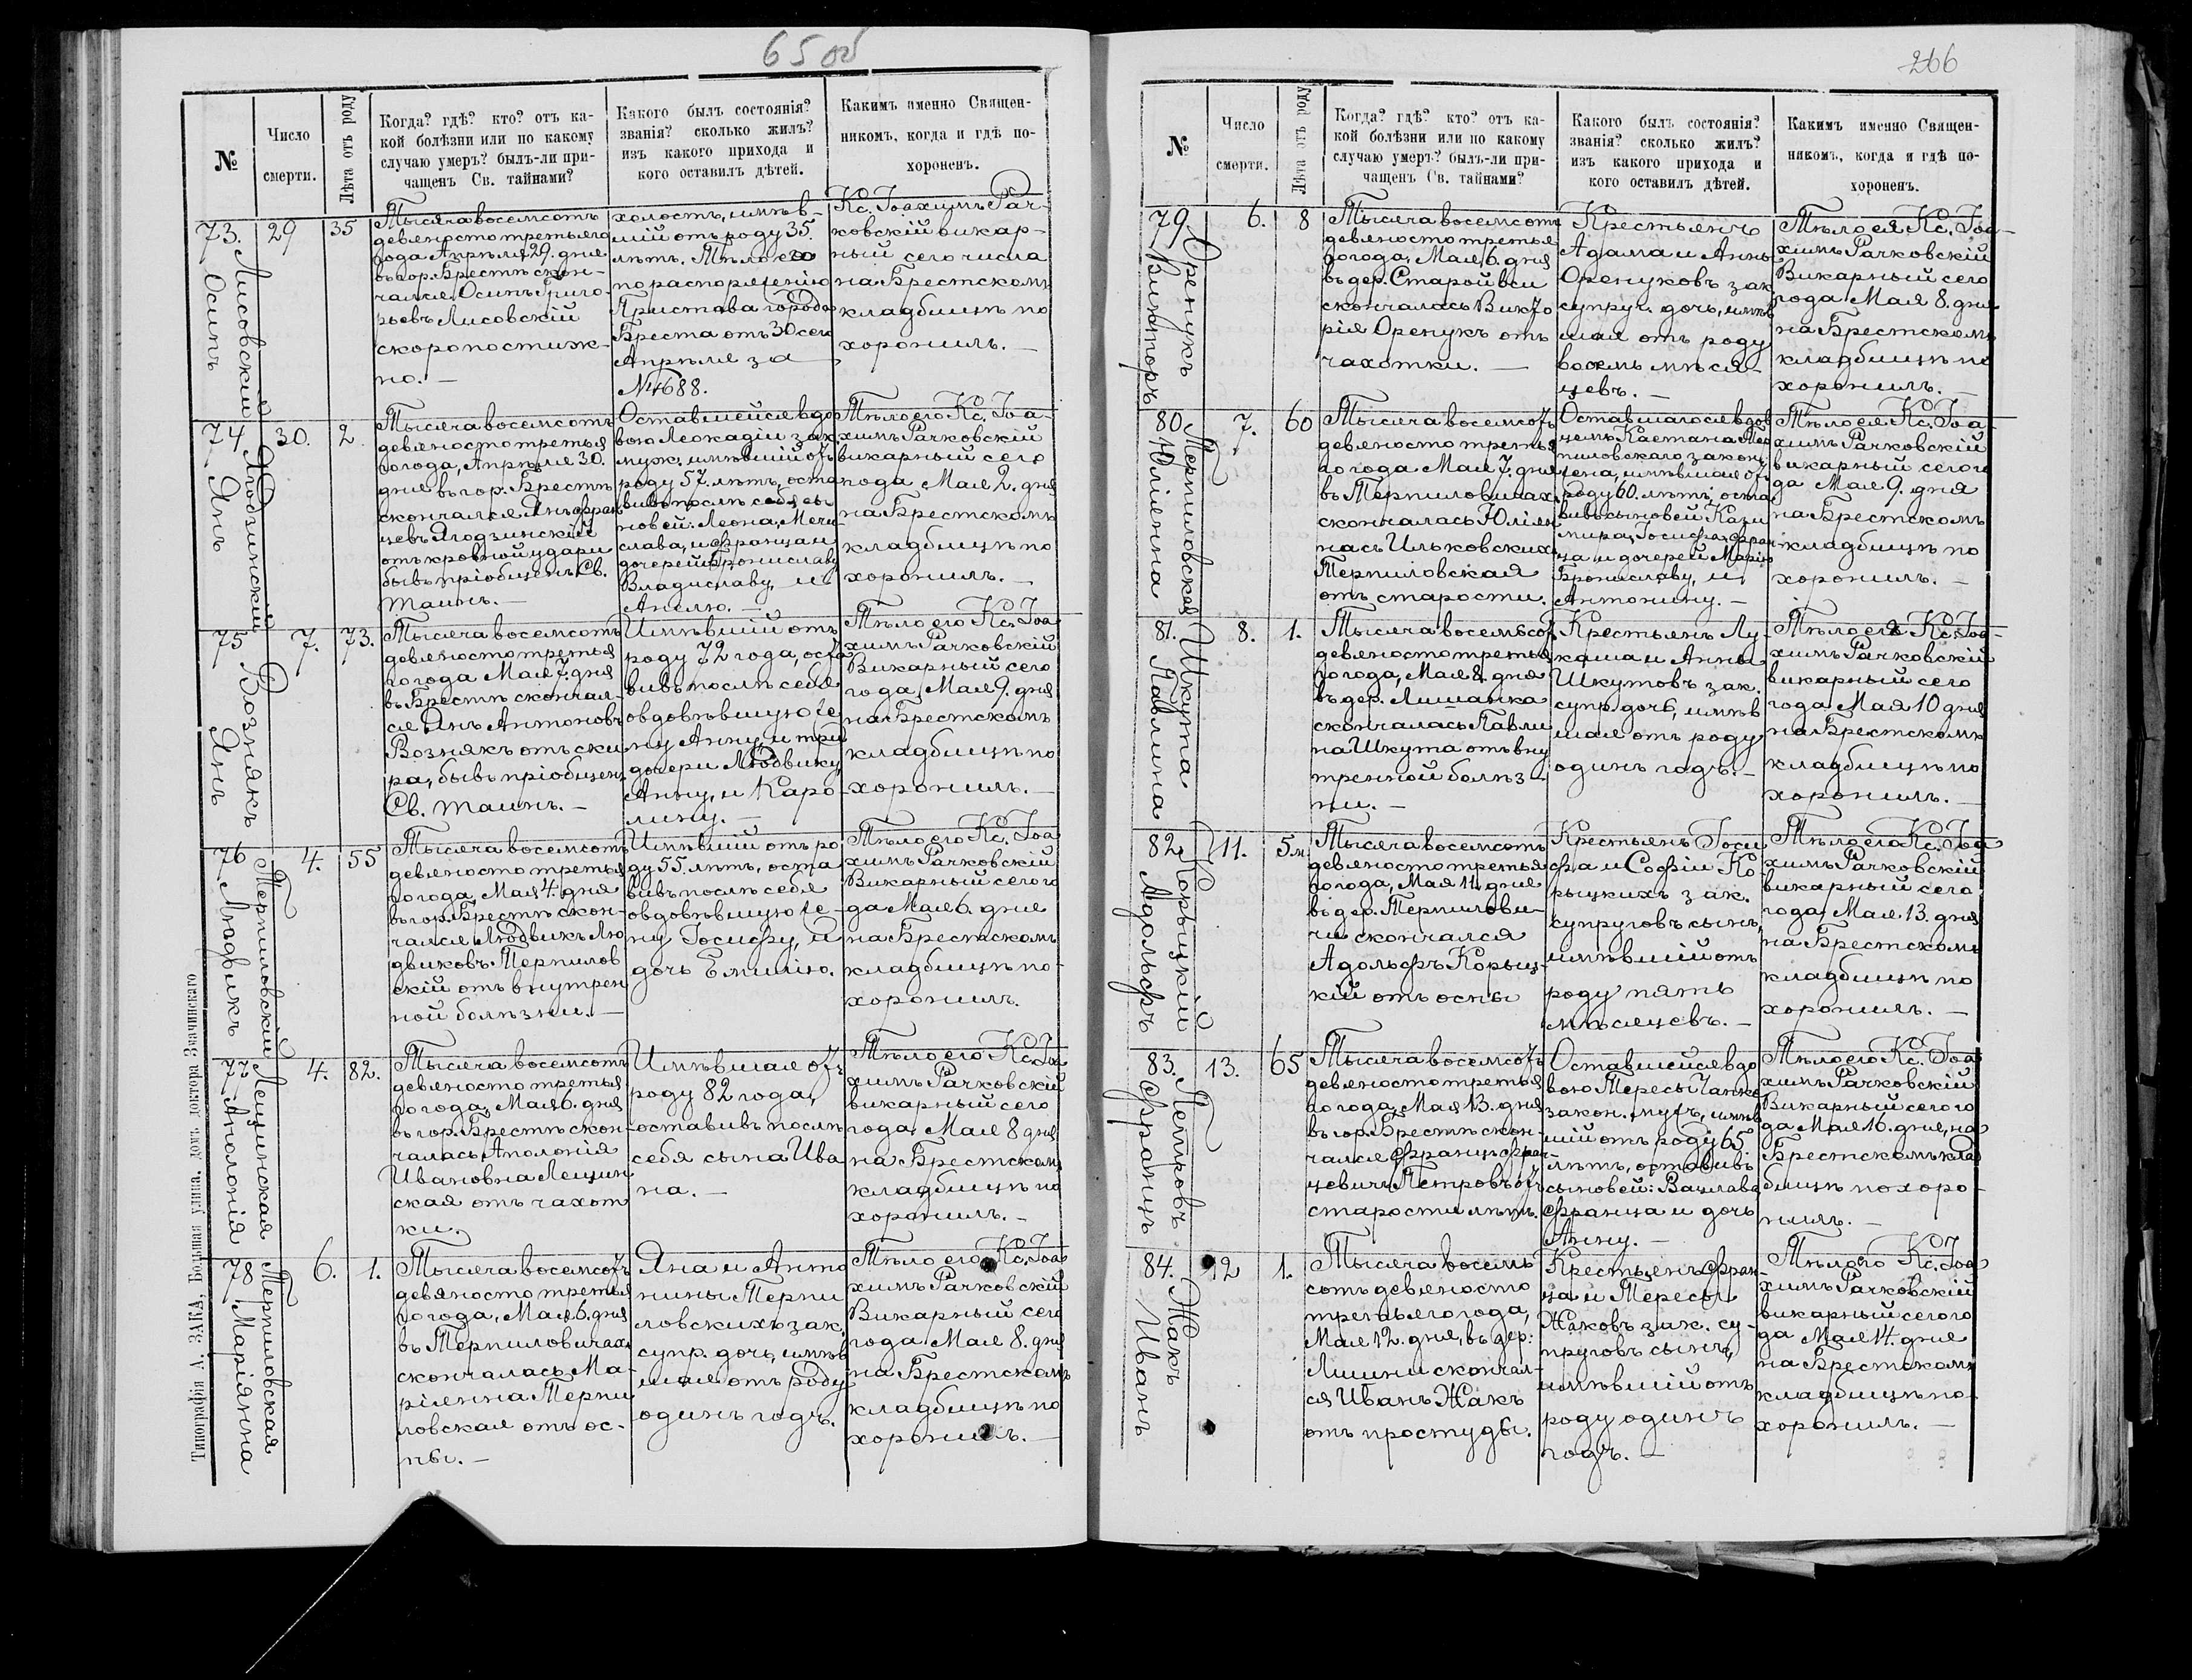 65 об
№
Число
смерти.
Лѣта отъ роду
Когда? гдѣ? кто? отъ ка-
кой болѣзни или по какому
случаю умеръ? былъ-ли при-
чащенъ Св. тайнами?
Какого былъ состоянія?
званія? сколько жилъ?
изъ какого прихода и
кого оставилъ дѣтей.
Какимъ именно Священ-
никомъ, когда и гдѣ по-
хороненъ.
73.
Лисовскій
Осипъ
29
35
Тысяча восемсотъ
девяносто третьяго
года Апрѣля 29. дня
въ гор. Брестѣ скон-
чался Осипъ Григо-
рьевъ Лисовскій
скоропостиж-
но. —
холостъ, имѣв-
шій отъ роду 35.
лѣтъ. Тѣло его
по распоряженію
Пристава города
Бреста отъ 30 сего
Апрѣля за
№ 4688.
Кс. Іоахимъ Рач-
ковскій викар-
ный сего числа
на Брестскомъ
кладбищѣ по
хоронилъ. —
74
Ягодзинскій
Янъ
30.
2
Тысяча восемсотъ
девяносто третья
го года, Апрѣля 30.
дня въ гор. Брестѣ
скончался Янъ Фран
цевъ Ягодзинскій
отъ кровной удари
бывъ пріобщенъ Св.
Таинъ. —
Оставшейся вдо
вою Леокадіи зак.
муж. имѣвшій отъ
роду 57. лѣтъ, оста
вивъ послѣ себя сы
новей: Леона, Мечи-
слава, и Францаи
дочерей Брониславу
Владиславу, и
Анелю. —
Тѣло его Кс. Іоа-
химъ Рачковскій
викарный сего
года Мая 2. дня
на Брестскомъ
кладбищѣ по
хоронилъ. —
75
Вознякъ
Янъ
7.
73.
Тысяча восемсотъ
девяносто третья
го года Мая 7. дня
въ Брестѣ скончал-
ся Янъ Антоновъ
Вознякъ отъ ски
ра, бывъ пріобщенъ
Св. таинъ. —
Имѣвшій отъ
роду 72 года, оста
вивъ послѣ себя
овдовѣвшую же
ну Анну, и три
дочери Людвику,
Анну, и Каро-
лину. —
Тѣло его Кс. Іоа
химъ Рачковскій
Викарный сего
года Мая 9. дня
на Брестскомъ
кладбищѣ по
хоронилъ. —
76
Терпиловскій
Людвикъ
4.
55
Тысяча восемсотъ
девяносто третья
го года, Мая 4. дня
въ гор. Брестѣ скон-
чался Людвикъ Лю
двиковъ Терпилов
скій отъ внутрен
ной болѣзни. —
Имѣвшій отъ ро
ду 55 лѣтъ, оста
вивъ послѣ себя
овдовѣвшую же-
ну Іосифу, и
дочь Емилію.
Тѣло его Кс. Іоа
химъ Рачковскій
Викарный сего го
да Мая 6. дня
на Брестскомъ
кладбищѣ по-
хоронилъ.
77.
Лещинская
Аполонія
4.
82.
Тысяча восемсотъ
девяносто третья
го года, Мая 6. дня
въ гор. Брестѣ скон
чалась Аполонія
Ивановна Лещин
ская отъ чахот
ки.
Имѣвшая отъ
роду 82 года,
оставивъ послѣ
себя сына Ива
на. —
Тѣло его Кс. Іоа
химъ Рачковскій
викарный сего
года, Мая 8 дня
на Брестскомъ
кладбищѣ по
хоронилъ. —
78
Терпиловская
Маріянна
6.
1.
Тысяча восемсотъ
девяносто третья
го года, Мая 6. дня
въ Терпиловичахъ
скончалась Ма-
ріянна Терпи
ловская отъ ос-
пы. —
Яна и Анто
нины Терпи
ловскихъ зак.
супр. дочь, имѣв
шая отъ роду
одинъ годъ.
Тѣло его Кс. Іоа
химъ Рачковскій
Викарный сего
года Мая 8. дня
на Брестскомъ
кладбищѣ по
хоронилъ. —
Типографія А. ЗАКА, Большая улица, домъ доктора Значинскаго
266
№
Число
смерти.
Лѣта отъ роду
Когда? гдѣ? кто? отъ ка-
кой болѣзни или по какому
случаю умеръ? былъ-ли при-
чащенъ Св. тайнами?
Какого былъ состоянія?
званія? сколько жилъ?
изъ какого прихода и
кого оставилъ дѣтей.
Какимъ именно Священ-
никомъ, когда и гдѣ по-
хороненъ.
79
Оренукъ
Викторъ
6.
8
Тысяча восемсотъ
девяносто третья
го года, Мая 6. дня
въ дер. Старой вси
скончалась Викто
рія Оренукъ отъ
чахотки. —
Крестьянъ
Адама и Анны
Оренуковъ зак.
супруг. дочь, имѣв
шая отъ роду
восемь мѣся-
цевъ. —
Тѣло ея Кс. Іоа-
химъ Рачковскій
Викарный сего
года Мая 8. дня
на Брестскомъ
кладбищѣ по
хоронилъ. —
80
Терпиловская
Юліянна
7.
60
Тысяча восемсотъ
девяносто третья
го года Мая 7. дня
въ Терпиловичахъ
скончалась Юліян
на съ Ильковскихъ
Терпиловская
отъ старости.
Оставшагося вдов
цемъ Каетана Тер
пиловскаго закон.
жена, имѣвшая отъ
роду 60. лѣтъ, оста
вивъ сыновей Кази
мира, Іосифа, Фран
ца и дочерей Марію
Брониславу, и
Антонину. —
Тѣло ея Кс. Іоа-
химъ Рачковскій
викарный сего го
да Мая 9. дня
на Брестскомъ
кладбищѣ по
хоронилъ. —
81.
Шкута
Павлина
8.
1.
Тысяча восемьсотъ
девяносто третья
го года, Мая 8. дня
въ дер. Лышанка
скончалась Павли
на Шкута отъ вну
тренной болѣз-
ни. —
Крестьянъ Лу-
каша и Анны
Шкутовъ зак.
супр. дочь, имѣв
шая отъ роду
одинъ годъ. —
Тѣло ея Кс. Іоа-
химъ Рачковскій
викарный сего
года Мая 10 дня
на Брестскомъ
кладбищѣ по
хоронилъ. —
82
Корыцкій
Адольфъ
11.
5 м
Тысяча восемсотъ
девяносто третья
го года, Мая 11. дня
въ дер. Терпилови-
чи скончался
Адольфъ Корыц-
кій отъ оспы
Крестьянъ Іоси
фа и Софіи Ко
рыцкихъ зак.
супруговъ сынъ,
имѣвшій отъ
роду пять
мѣсяцевъ. —
Тѣло его Кс. Іоа
химъ Рачковскій
викарный сего
года, Мая 13. дня
на Брестскомъ
кладбищѣ по
хоронилъ. —
83.
Петровъ
Францъ
13.
65
Тысяча восемсотъ
девяносто третья
го года, Мая 13. дня
въ гор. Брестѣ скон-
чался Францъ Фран-
цевичъ Петровъ отъ
старости лѣтъ.
Оставшейся вдо
вою Тересы
закон. мужъ, имѣв
шій отъ роду 65
лѣтъ, оставивъ
сыновей: Вацлава
Франца и дочь
Анну. —
Тѣло его Кс. Іоа
химъ Рачковскій
Викарный сего го
да Мая 16. дня, на
Брестскомъ клад
бищѣ похоро
нилъ. —
84.
Жакъ
Иванъ
12
1.
Тысяча восемь
сотъ девяносто
третьяго года,
Мая 12. дня, въ дер.
Лышни скончал-
ся Иванъ Жакъ
отъ простуды.
Крестьянъ Фран
ца и Тересы
Жаковъ зак. су-
пруговъ сынъ,
имѣвшій отъ
роду одинъ
годъ. —
Тѣло его Кс. Іоа
химъ Рачковскій
викарный сего го
да Мая 14. дня
на Брестскомъ
кладбищѣ по-
хоронилъ. —